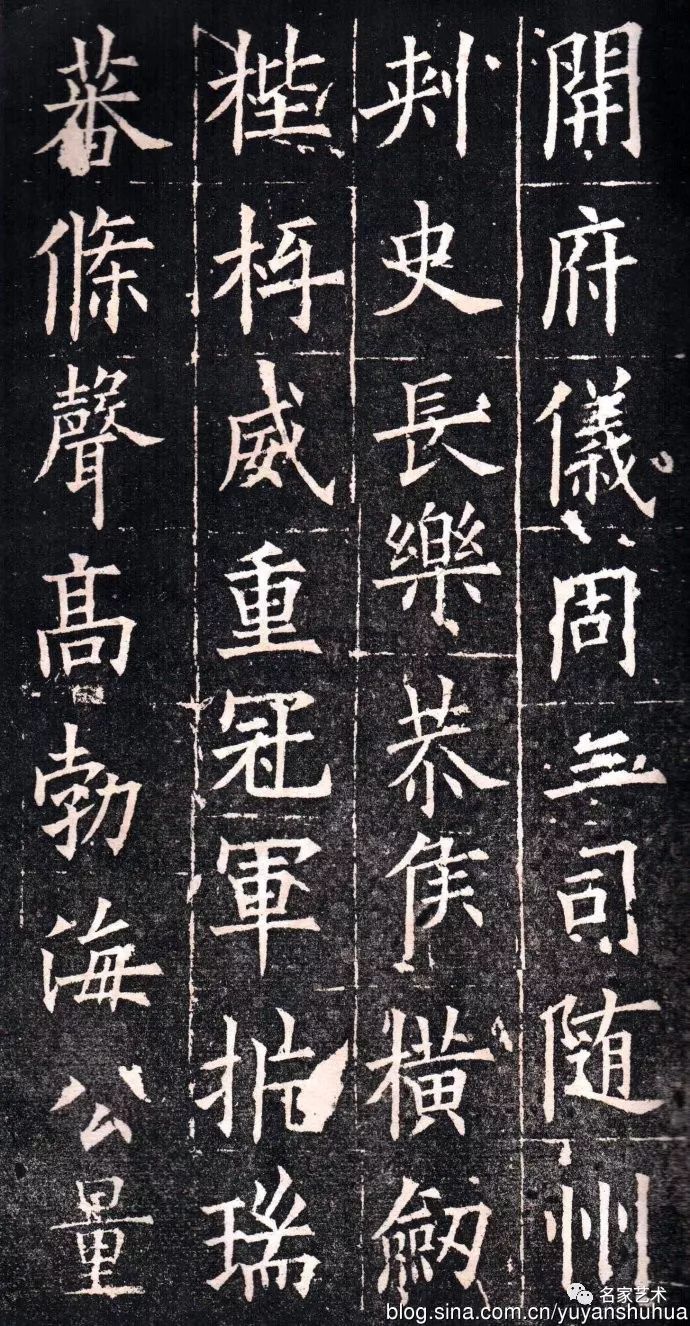 開府儀同三司随州
刺史長樂恭侯橫劒
梐枑威重冠軍析瑞
蕃條聲高勃海公量
名家艺术
blog.sina.com.cn/yuyanshuhua